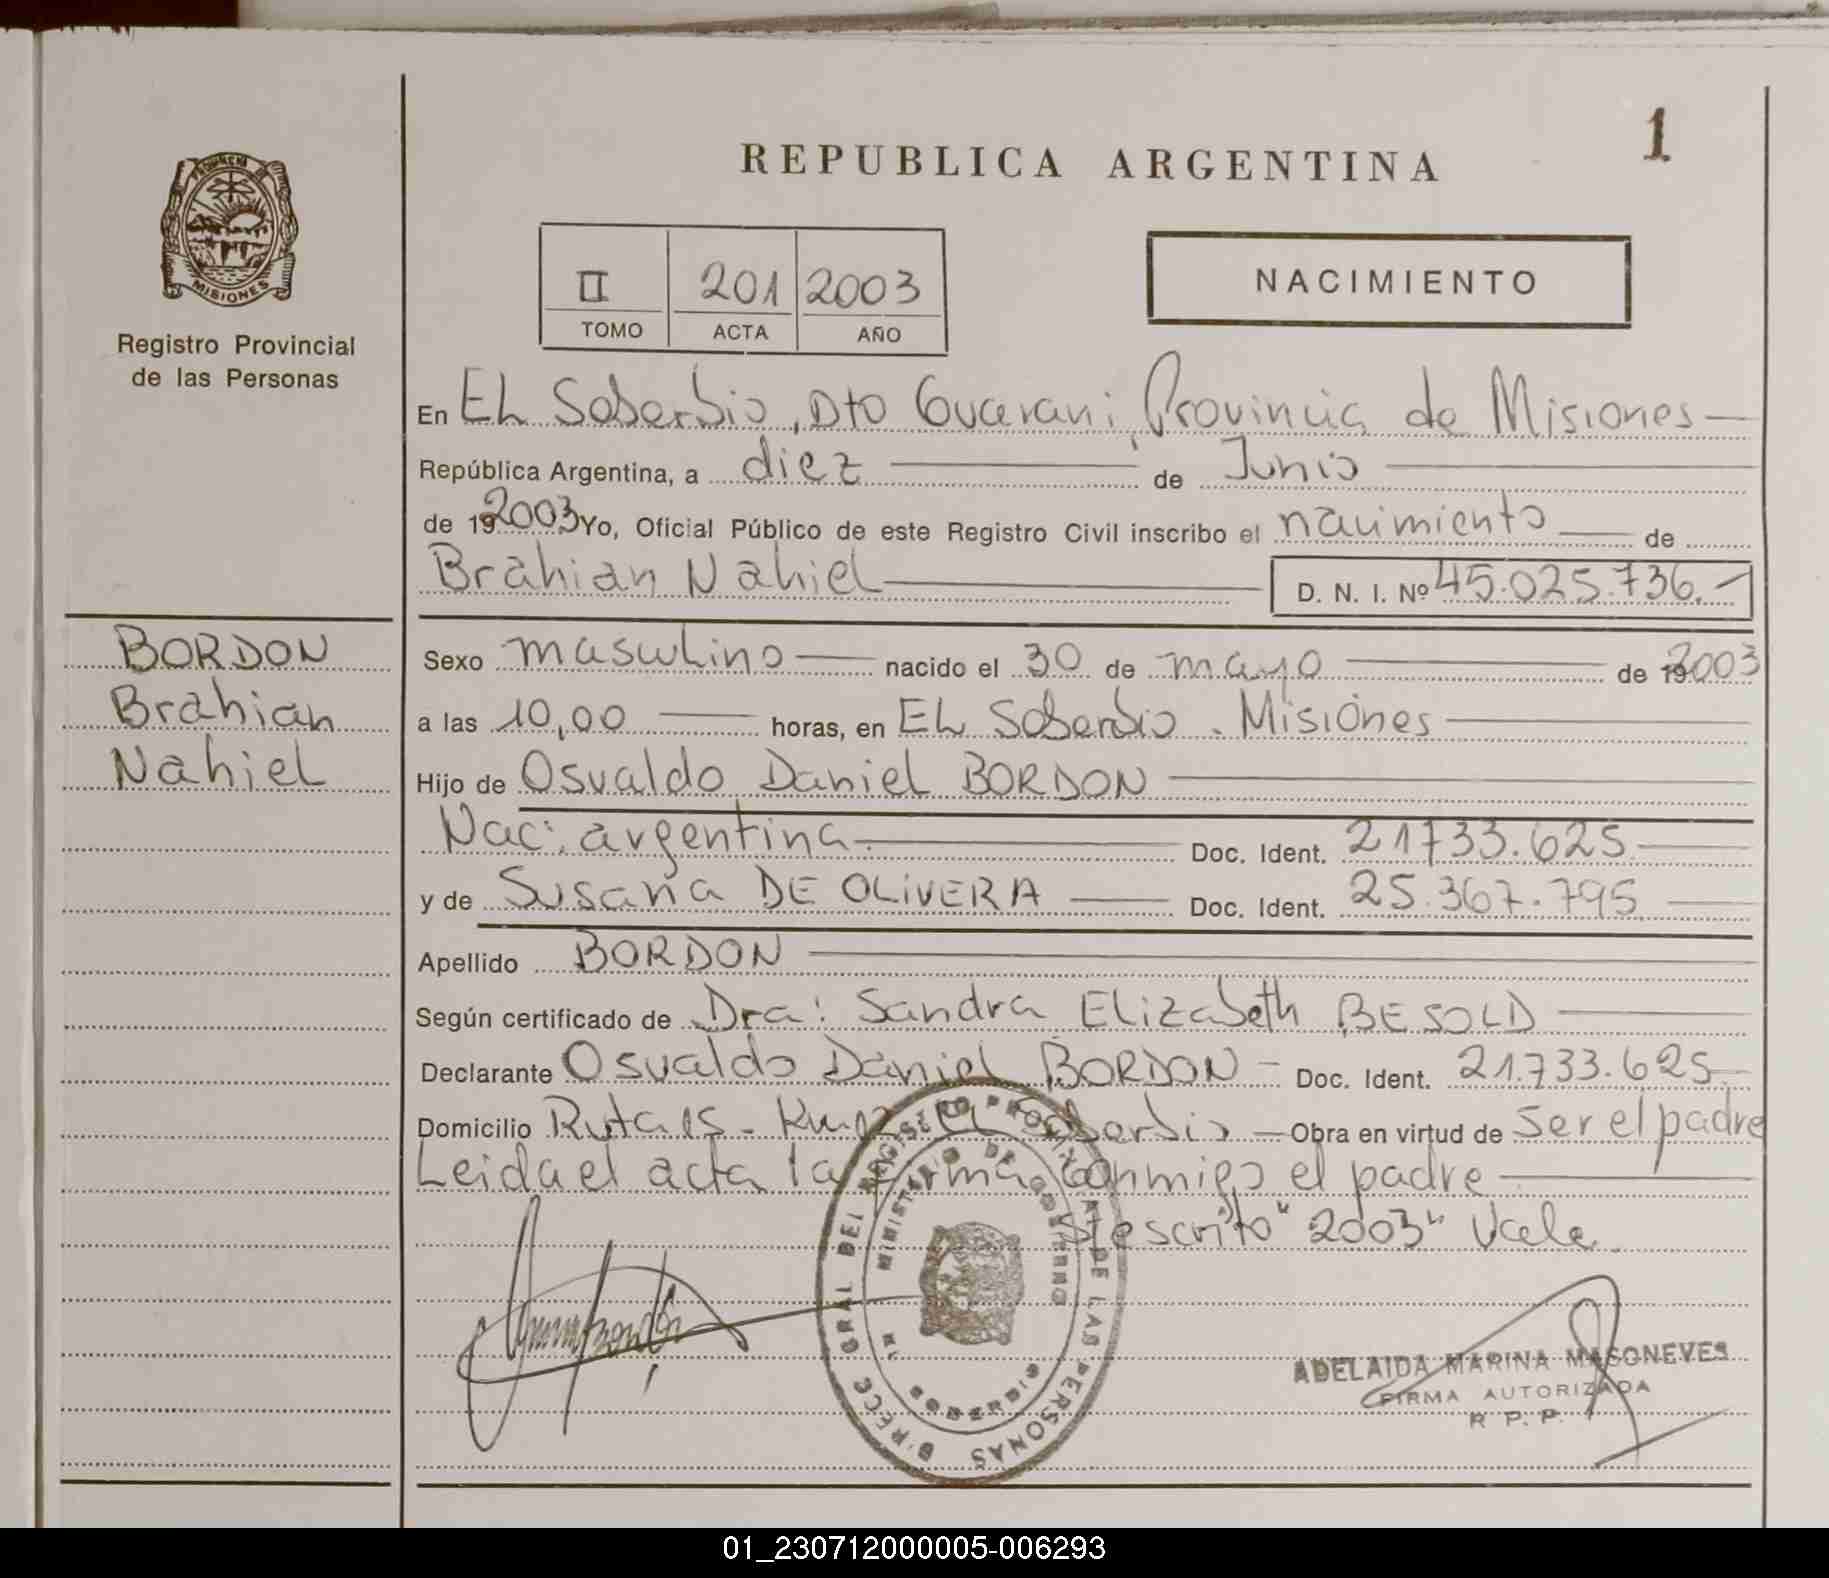 1
REPUBLICA ARGENTINA
PROVINCIA DE
MISIONES
Registro Provincial
de las Personas
II 201 2003
TOMO ACTA AÑO
NACIMIENTO
En El Soberbio, Dto Guarani, Provincia de Misiones
República Argentina, a diez de Junio
de 19 2003 Yo, Oficial Público de este Registro Civil inscribo el nacimiento de
Brahian Nahiel D. N. I. Nº 45.025.736.-
BORDON
Brahian
Nahiel
Sexo masculino nacido el 30 de mayo de 19 2003
a las 10,00 horas, en El Soberbio. Misiones
Hijo de Osvaldo Daniel BORDON
Nac: argentina. Doc. Ident. 21733.625
y de Susana DE OLIVERA Doc. Ident. 25.367.795
Apellido BORDON
Según certificado de Dra: Sandra Elizabeth BESOLD
Declarante Osvaldo Daniel BORDON - Doc. Ident. 21.733.625
Domicilio Ruta El Soberbio - Obra en virtud de ser el padre
Leida el acta la firma conmigo el padre
S/escrito "2003" Vale
DIRECC GRAL DEL REGISTRO PROVINCIAL DE LAS PERSONAS
MINISTERIO DE GOBIERNO
EL SOBERBIO
ADELAIDA MARINA MASONEVES
FIRMA AUTORIZADA
R. P. P.
01_230712000005-006293